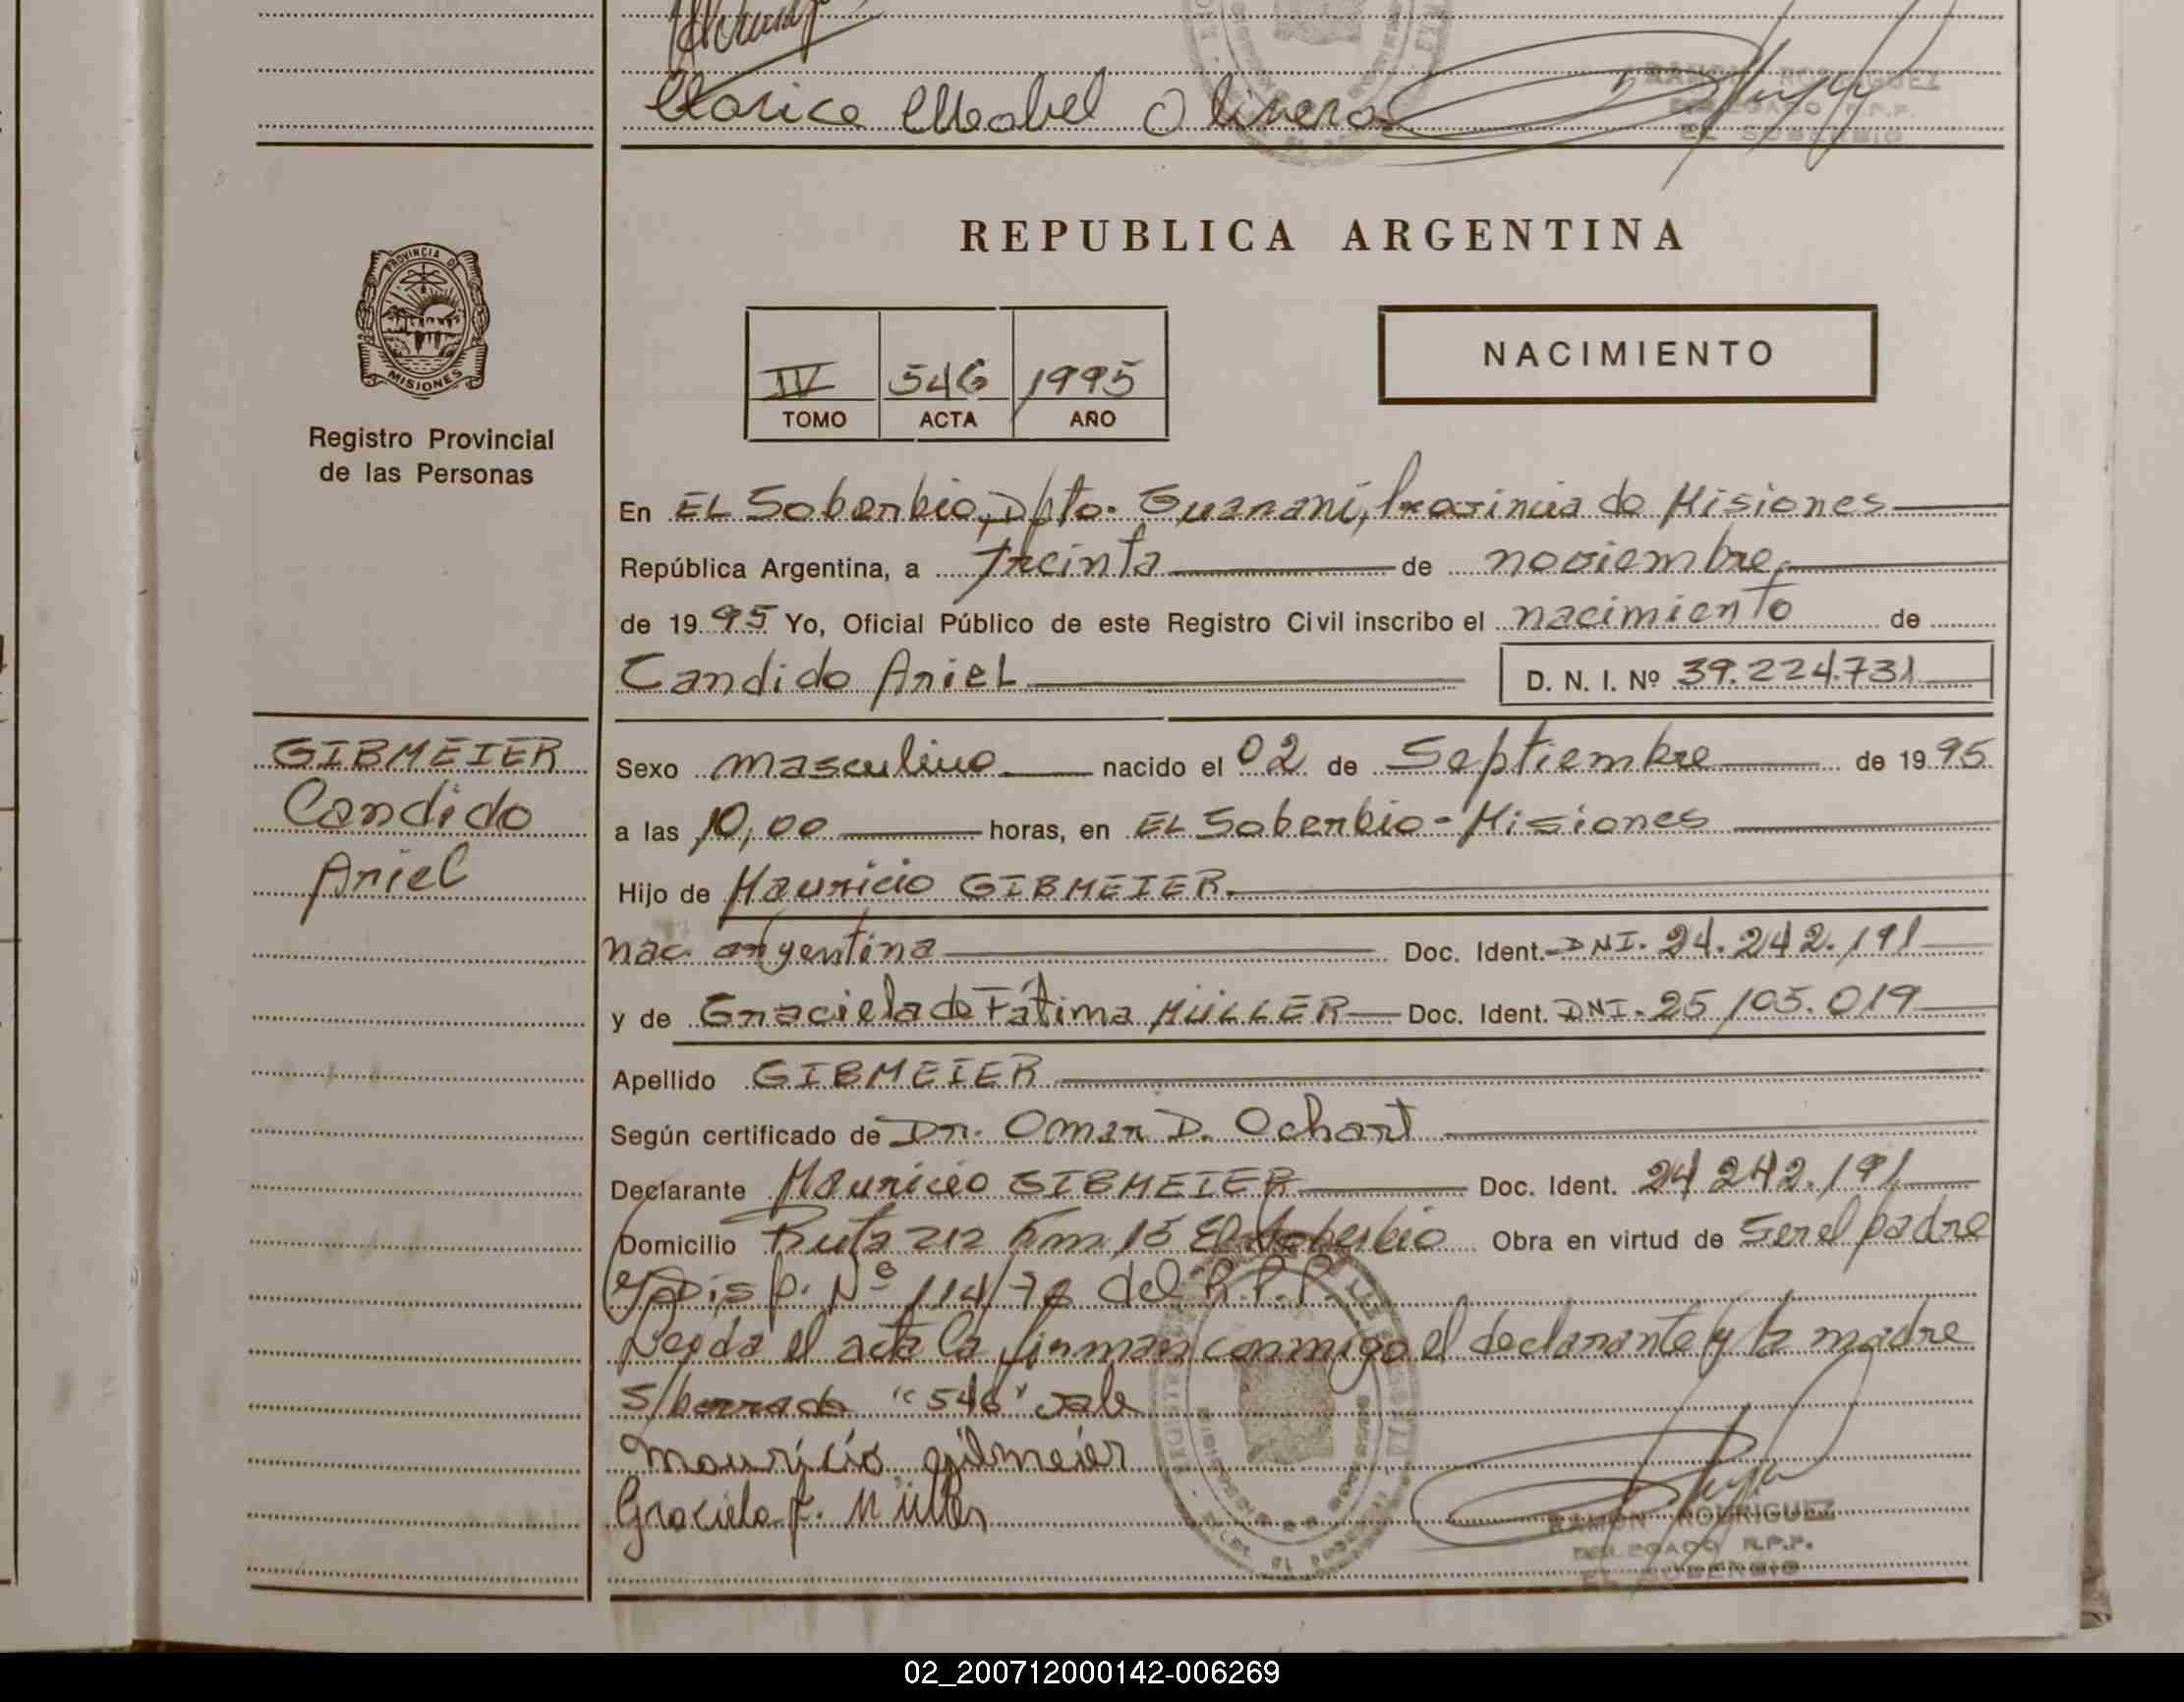 Clarice Mabel Olivera
RAMON RODRIGUEZ
DELEGADO R.P.P.
EL SOBERBIO
REPUBLICA ARGENTINA
PROVINCIA DE
MISIONES
Registro Provincial
de las Personas
IV 546 1995
TOMO ACTA AÑO
NACIMIENTO
En EL Soberbio, Dpto. Guaraní, Provincia de Misiones
República Argentina, a Treinta de noviembre,
de 1995 Yo, Oficial Público de este Registro Civil inscribo el nacimiento de
Candido Ariel D. N. I. Nº 39.224.731
GIBMEIER
Candido
Ariel
Sexo masculino nacido el 02 de Septiembre de 1995
a las 10,00 horas, en EL Soberbio - Misiones
Hijo de Mauricio GIBMEIER.
nac. argentina Doc. Ident. DNI. 24.242.191
y de Graciela de Fátima MÜLLER Doc. Ident. DNI. 25 105.019
Apellido GIBMEIER
Según certificado de Dr. Omar D. Ochart
Declarante Mauricio GIBMEIER Doc. Ident. 24 242.191
Domicilio Ruta 212 Km 15 El Soberbio Obra en virtud de Ser el padre
y Disp. Nº 114/78 del R.P.P.
Leyda el acta la firman conmigo el declarante y la madre
S/borrado "546" vale
mauricio gibmeier
Graciela F. Müller
RAMON RODRIGUEZ
DELEGADO R.P.P.
EL SOBERBIO
02_200712000142-006269